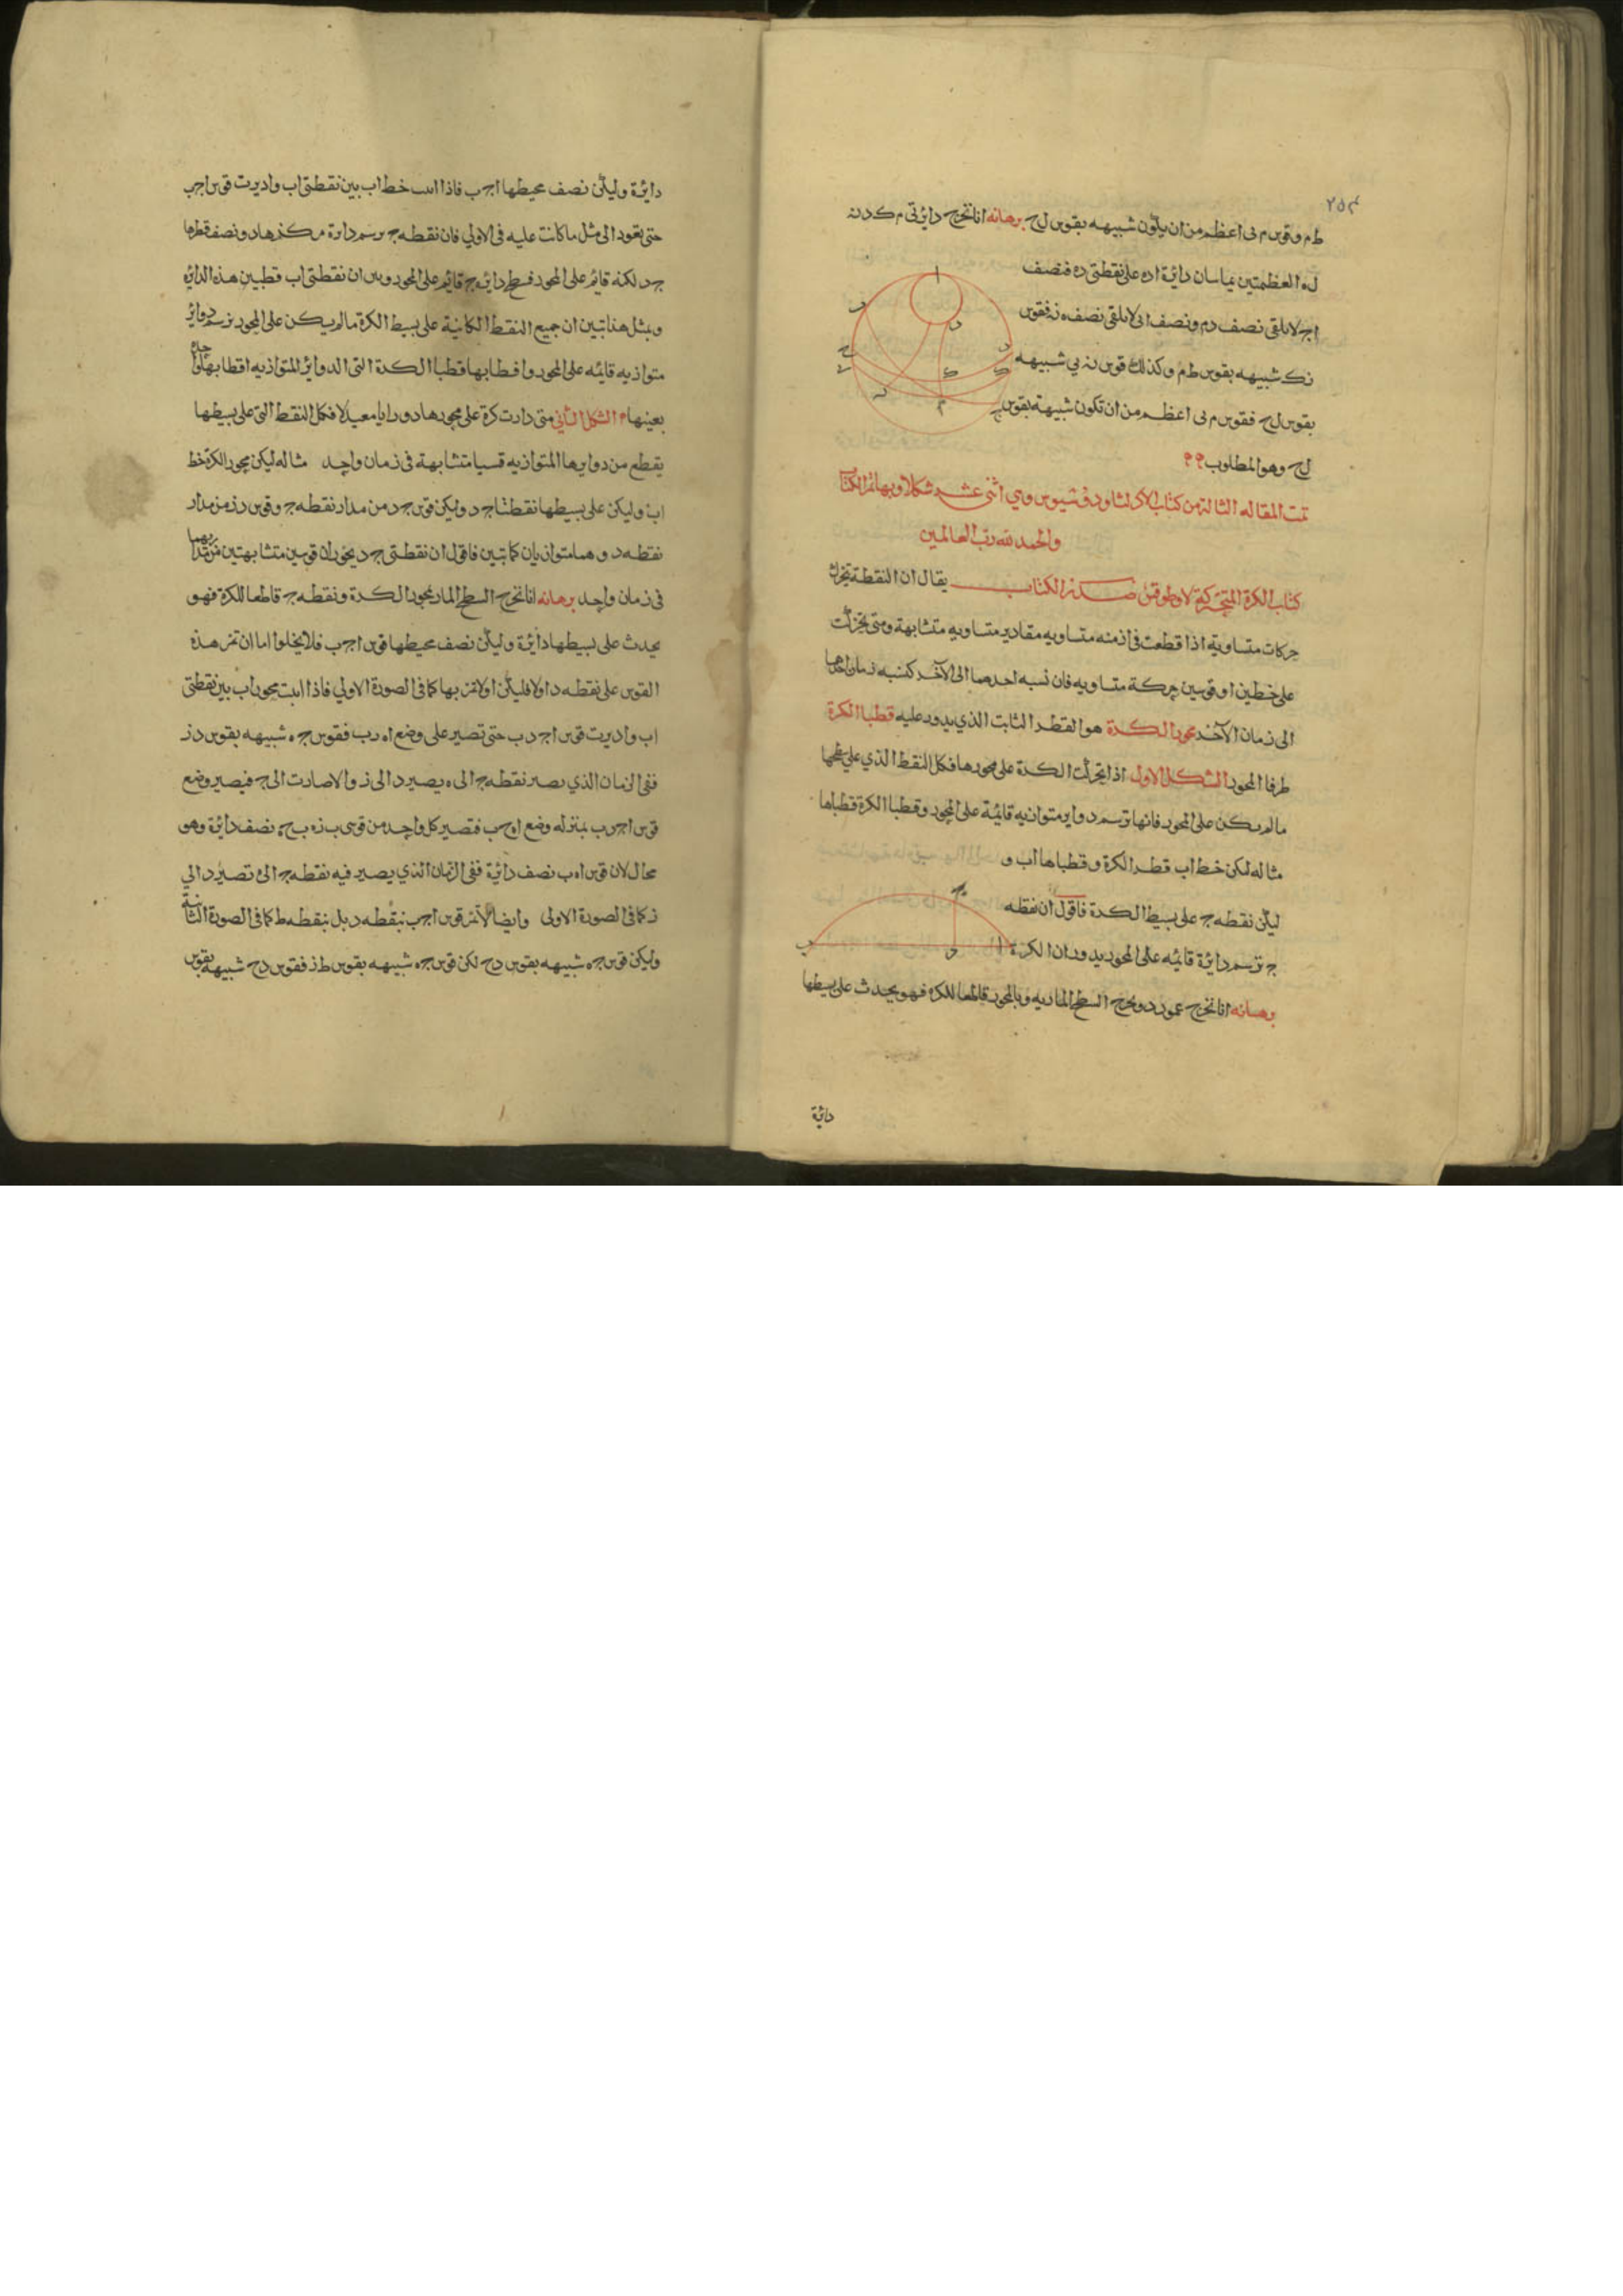 ٢٥٤
ط م وقوس م ى اعظم من ان يكون شبيهه بقوس ل ح برهانه انا نخرج دائرتى م ك د ن
ل ه العظمتين يماسان دائرة ا د ه على نقطتى د ه فنصف
ا ج لا يلقى نصف د م ونصف ا ى لا يلقى نصف ه ن فقوس
ن ك شبيهه بقوس ط م وكذلك قوس ن ى شبيهه
بقوس ل ح فقوس م ى اعظم من ان تكون شبيهة بقوس
ل ح وهو المطلوب
تمت المقاله الثالثة من كتاب الاكر لثاودوسيوس وهي اثنى عشر شكلا وبها تم الكتاب
والحمد لله رب العالمين
كتاب الكرة المتحركة لاوطوقس صدر الكتاب يقال ان النقطة تتحرك
حركات متساوية اذا قطعت فى ازمنه متساويه مقادير متساويه متشابهة ومتى تحركت
على خطين او قوسين حركة متساويه فان نسبه احدهما الى الآخر كنسبه زمان احدهما
الى زمان الآخر محور الكرة هو القطر الثابت الذي يدور عليه قطبا الكرة
طرفا المحور الشكل الاول اذا تحركت الكرة على محورها فكل النقط الذي على سطحها
ما لم يكن على المحور فانها ترسم دواير متوازيه قايمة على المحور وقطبا الكرة قطباها
مثاله لكن خط اب قطر الكرة وقطباها اب و
ليكن نقطه ج على بسيط الكرة فاقول ان نقطه
ج ترسم دائرة قايمه على المحور بدوران الكرة
برهانه انا نخرج عمود د و نخرج السطح المار به وبالمحور قاطعا للكره فهو يحدث على بسيطها
دائرة
دائرة وليكن نصف محيطها ا ج ب فاذا اثبت خط اب بين نقطتى اب واديرت قوس ا ج ب
حتى تعود الى مثل ما كانت عليه فى الاولي فان نقطه ج يرسم دايرة مركزها د ونصف قطرها
ج د لكنه قائم على المحور فسطح دائره ج قايم على المحور وبين ان نقطتى اب قطبين هذه الدايره
وبمثل هذا تبين ان جميع النقط الكاينة على بسيط الكرة ما لم يكن على المحور ترسم دواير
متوازيه قايمه على المحور واقطابها قطبا الكرة التى الدوائر المتوازيه اقطابها
بعينها الشكل الثاني متى دارت كرة على محورها دورايا معتدلا فكل النقط التى على بسيطها
يقطع من دوايرها المتوازيه قسيا متشابهة فى زمان واحد مثاله ليكن محور الكرة خط
اب وليكن على بسيطها نقطتا ج د وليكن قوس ج ه من مدار نقطه ج وقوس د ز من مدار
نقطه د وهما متوازيان كما تبين فاقول ان نقطتى ج د يحوزان قوسين متشابهتين من مداريهما
فى زمان واحد برهانه انا نخرج السطح المار بمحور الكرة ونقطه ج قاطعا للكرة فهو
يحدث على بسيطها دائرة وليكن نصف محيطها قوس ا ج ب فلا يخلوا اما ان تمر هذه
القوس على نقطه د اولا فليكن اولا تمر بها كما فى الصورة الاولي فاذا اثبت محور اب بين نقطتى
اب واديرت قوس ا ج د ب حتى تصير على وضع ا ه ز ب فقوس ج ه شبيهه بقوس د ز
ففى الزمان الذي يصير نقطه ج الى ه يصير د الى ز والا صارت الى ح فيصير وضع
قوس ا ج د ب بمنزله وضع ا ه ح ب فتصير كل واحد من قوسى ب ز ه ب ح ه نصف دائرة وهو
محال لان قوس ا ه ب نصف دائرة ففى الزمان الذي يصير فيه نقطه ج الى ه تصير د الي
ز كما فى الصورة الاولى وايضا لا تمر قوس ا ج ب بنقطه د بل بنقطه ط كما فى الصورة الثانية
وليكن قوس ج ه شبيهه بقوس د ح لكن قوس ج ه شبيهه بقوس ط ز فقوس د ح شبيهه بقوس